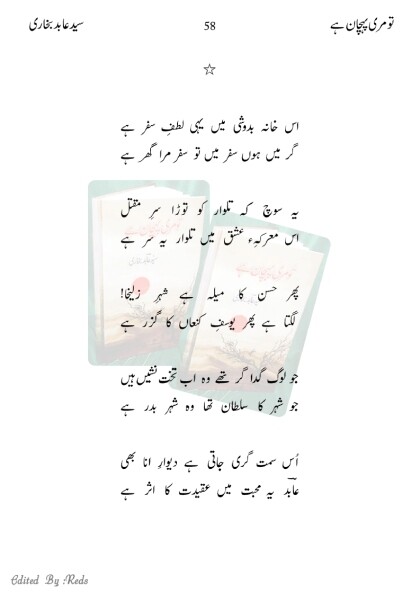 تو مری پہچان ہے 58 سید عابد بخاری
☆
اس خانہ بدوشی میں یہی لطفِ سفر ہے
گر میں ہوں سفر میں تو سفر مرا گھر ہے
یہ سوچ کہ تلوار کو توڑا سرِ مقتل
اس معرکہء عشق میں تلوار یہ سر ہے
پھر حسن کا میلہ ہے شہرِ زلیخا!
لگتا ہے پھر یوسفِ کنعاں کا گزر ہے
جو لوگ گداگر تھے وہ اب تخت نشیں ہیں
جو شہر کا سلطان تھا وہ شہر بدر ہے
اُس سمت گری جاتی ہے دیوارِ انا بھی
عابدؔ یہ محبت میں عقیدت کا اثر ہے
Edited By Reds